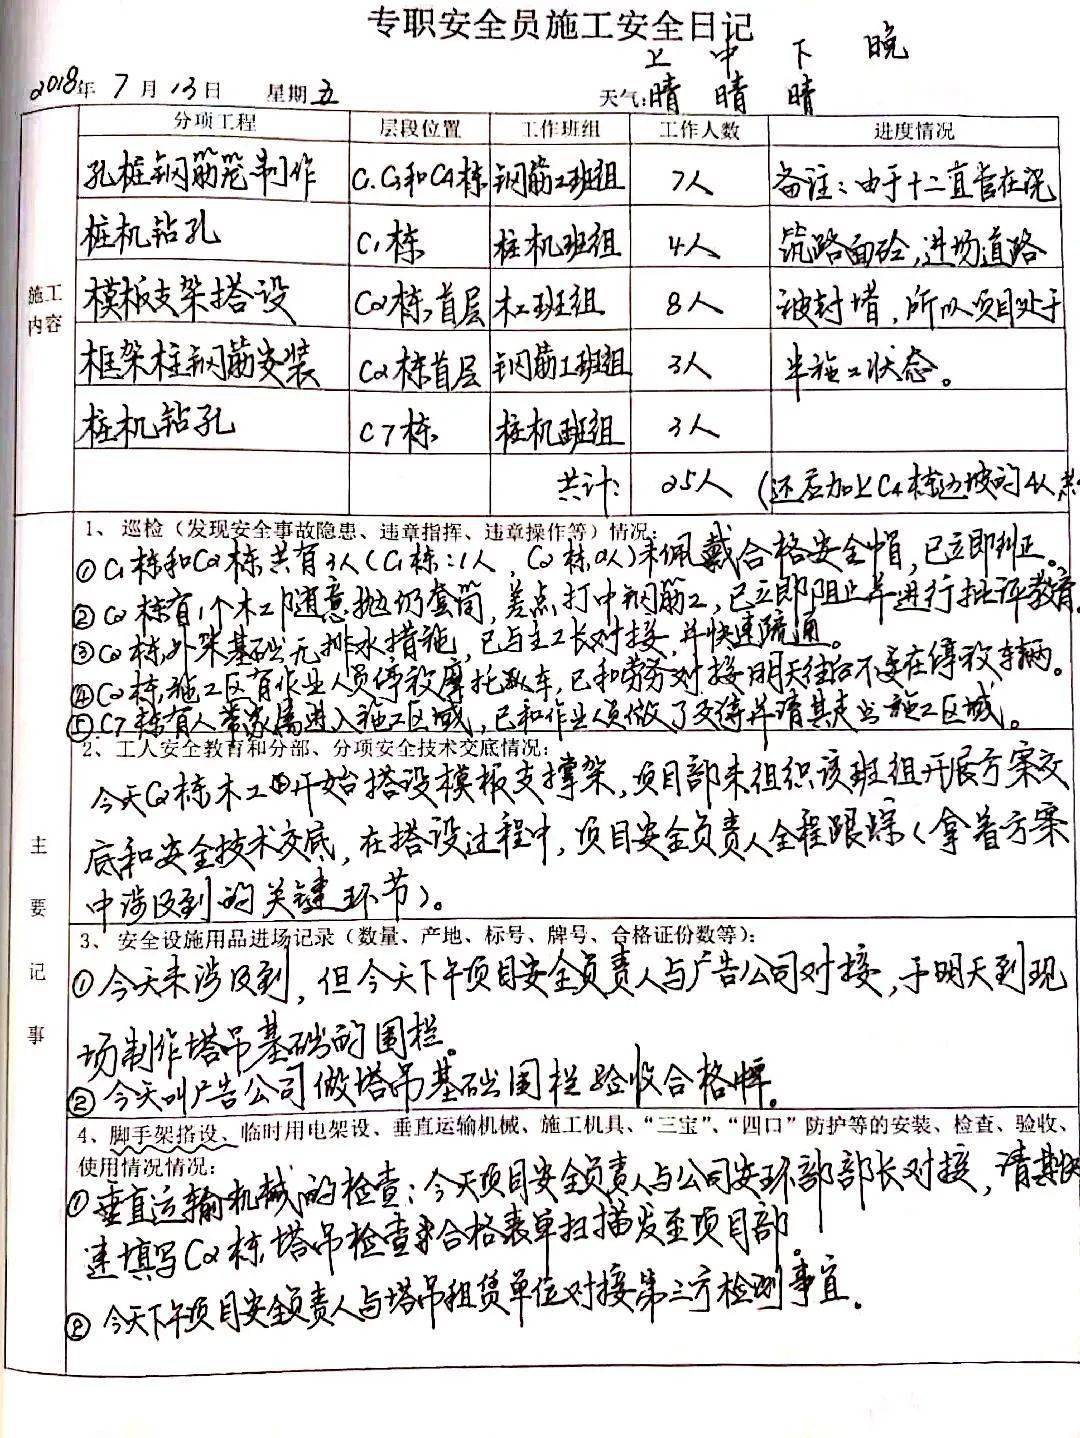 专职安全员施工安全日记
上 中 下 晚
2018年 7月13日 星期五 天气:晴 晴 晴
分项工程 层段位置 工作班组 工作人数 进度情况
孔桩钢筋笼制作 C1.C3和C4栋 钢筋工班组 7人 备注:由于十二直管在浇
桩机钻孔 C1栋 桩机班组 4人 筑路面砼,进场道路
施工内容
模板支架搭设 C2栋,首层 木工班组 8人 被封堵,所以项目处于
框架柱钢筋安装 C2栋首层 钢筋工班组 3人 半施工状态。
桩机钻孔 C7栋 桩机班组 3人
共计: 25人 (还应加上C4栋边坡的4人
1、巡检(发现安全事故隐患、违章指挥、违章操作等)情况:
①C1栋和C2栋共有3人(C1栋:1人,C2栋2人)未佩戴合格安全帽,已立即纠正。
②C2栋有1个木工随意抛扔套筒,差点打中钢筋工,已立即阻止并进行批评教育。
③C2栋,外架基础无排水措施,已与主工长对接,并快速疏通。
④C2栋,施工区有作业人员停放摩托车,已和劳务对接明天往后不要在停放车辆。
⑤C7栋有人带家属进入施工区域,已和作业人员做了交待并请其走出施工区域。
2、工人安全教育和分部、分项安全技术交底情况:
今天C2栋木工开始搭设模板支撑架,项目部未组织该班组开展方案交
底和安全技术交底,在搭设过程中,项目安全负责人全程跟踪(拿着方案
中涉及到的关键环节)。
主要记事
3、安全设施用品进场记录(数量、产地、标号、牌号、合格证份数等):
①今天未涉及到,但今天下午项目安全负责人与广告公司对接,于明天到现
场制作塔吊基础的围栏。
②今天叫广告公司做塔吊基础围栏验收合格牌。
4、脚手架搭设、临时用电架设、垂直运输机械、施工机具、“三宝”、“四口”防护等的安装、检查、验收、
使用情况情况:
①垂直运输机械的检查:今天项目安全负责人与公司安环部部长对接,请其快
速填写C2栋,塔吊检查合格表单扫描发至项目部。
②今天下午项目安全负责人与塔吊租赁单位对接第三方检测事宜。